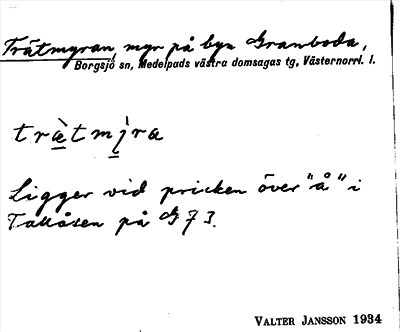 Trätmyran, myr på byn Gramboda,
Borgsjö sn, Medelpads västra domsagas tg, Västernorrl. l.
trä̀tmỳra
Ligger vid pricken över "å" i
Tallåsen på G 7 J.
VALTER JANSSON 1934